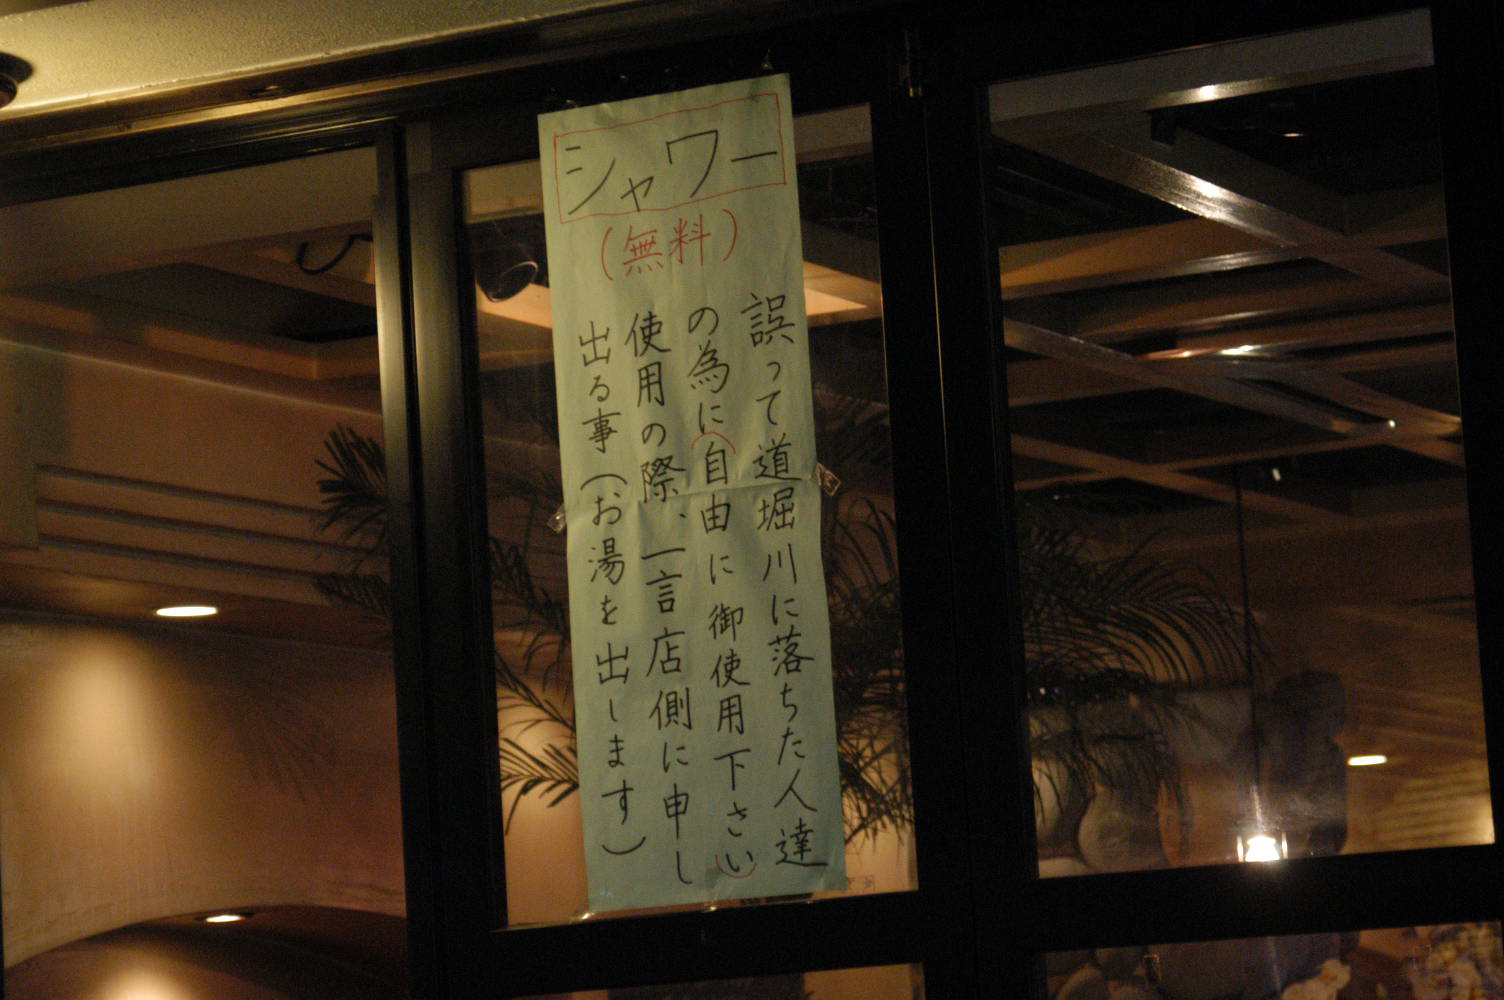 シャワー
(無料)
誤って道堀川に落ちた人達
の為に自由に御使用下さい
使用の際、一言店側に申し
出る事(お湯を出します)